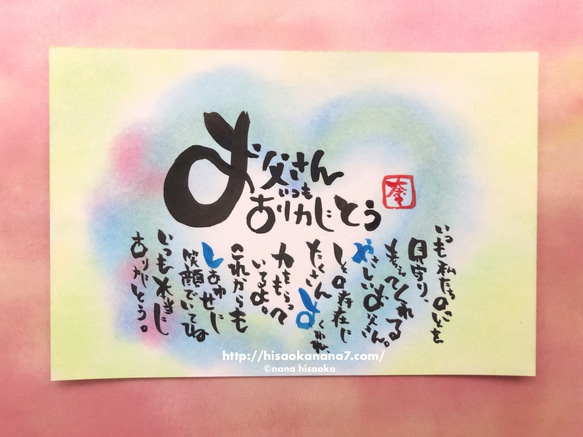 お父さん
いつも
ありがとう
いつも私たちのことを
見守り、
支えてくれる
やさしいお父さん。
その存在に
たくさん
力をもらって
いるよ。
これからも
しあわせに
笑顔でいてね
いつも本当に
ありがとう。
http://hisaokanana7.com/
©nana hisaoka